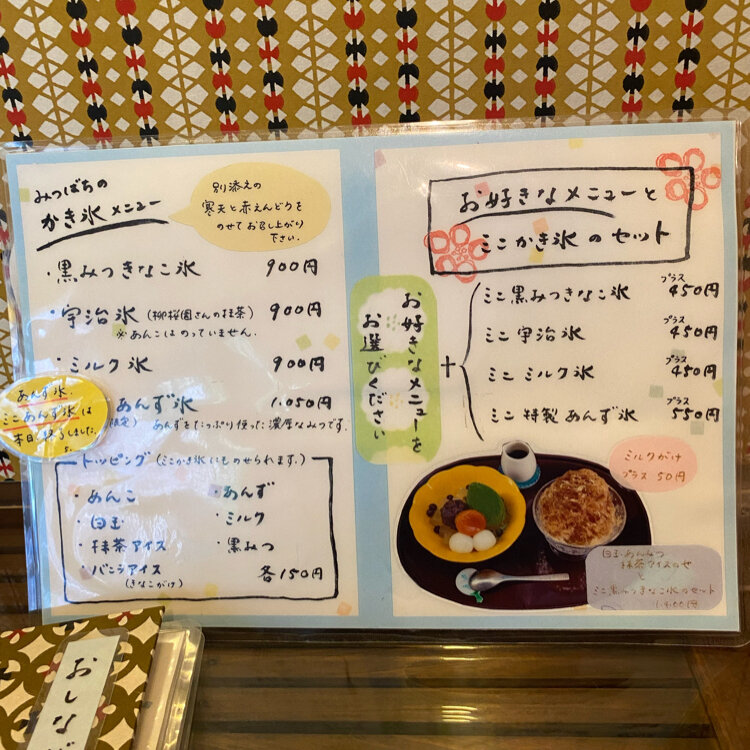 みつばちの
かき氷メニュー
別添えの
寒天と赤えんどうを
のせてお召し上がり
下さい.
・黒みつきなこ氷 900円
・宇治氷 (柳桜園さんの抹茶) 900円
※あんこはのっていません.
・ミルク氷 900円
あんず氷 1.050円
限定) あんずをたっぷり使った濃厚なみつです.
あんず氷.
ミニあんず氷は
本日終了しました.
トッピング (ミニかき氷にものせられます.)
・あんこ
・白玉
・抹茶アイス
・バニラアイス
(きなこがけ)
・あんず
・ミルク
・黒みつ
各150円
お好きなメニューと
ミニかき氷のセット
お好きなメニューを
お選びください
+
ミニ黒みつきなこ氷 プラス 450円
ミニ宇治氷 プラス 450円
ミニミルク氷 プラス 450円
ミニ特製あんず氷 プラス 550円
ミルクがけ
プラス50円
白玉あんみつ
抹茶アイスのせ
と
ミニ黒みつきなこ氷のセット
おしな